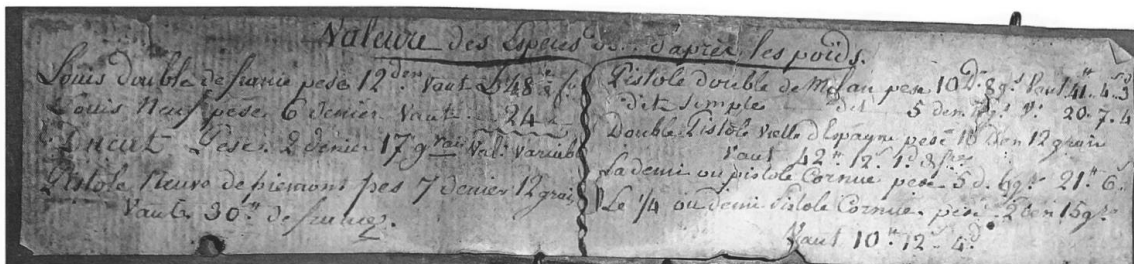 Valeure des Especes d'après les poids.
Louis double de france pese 12 den vaut L 48
Louis Neuf pese 6 denier Vaut 24
Ducat Pese 2 denier 17 grain Val. variable
Pistole Neuve de piemont pes 7 denier 12 grain
Vaut 30 de france
Pistole double de Milan pese 10 D. 8 g. Vaut 41 4 3
dit simple dit 5 den 20 7 4
Double Pistole vielle d'Espagne pese 10 Den 12 grain
Vaut 42 12 1 d
La demi ou pistole Cornue pese 5 d. 6 g. 21 6
Le 1/4 ou demi Pistole Cornue pese 2 den 15 g
Vaut 10 12 4 d